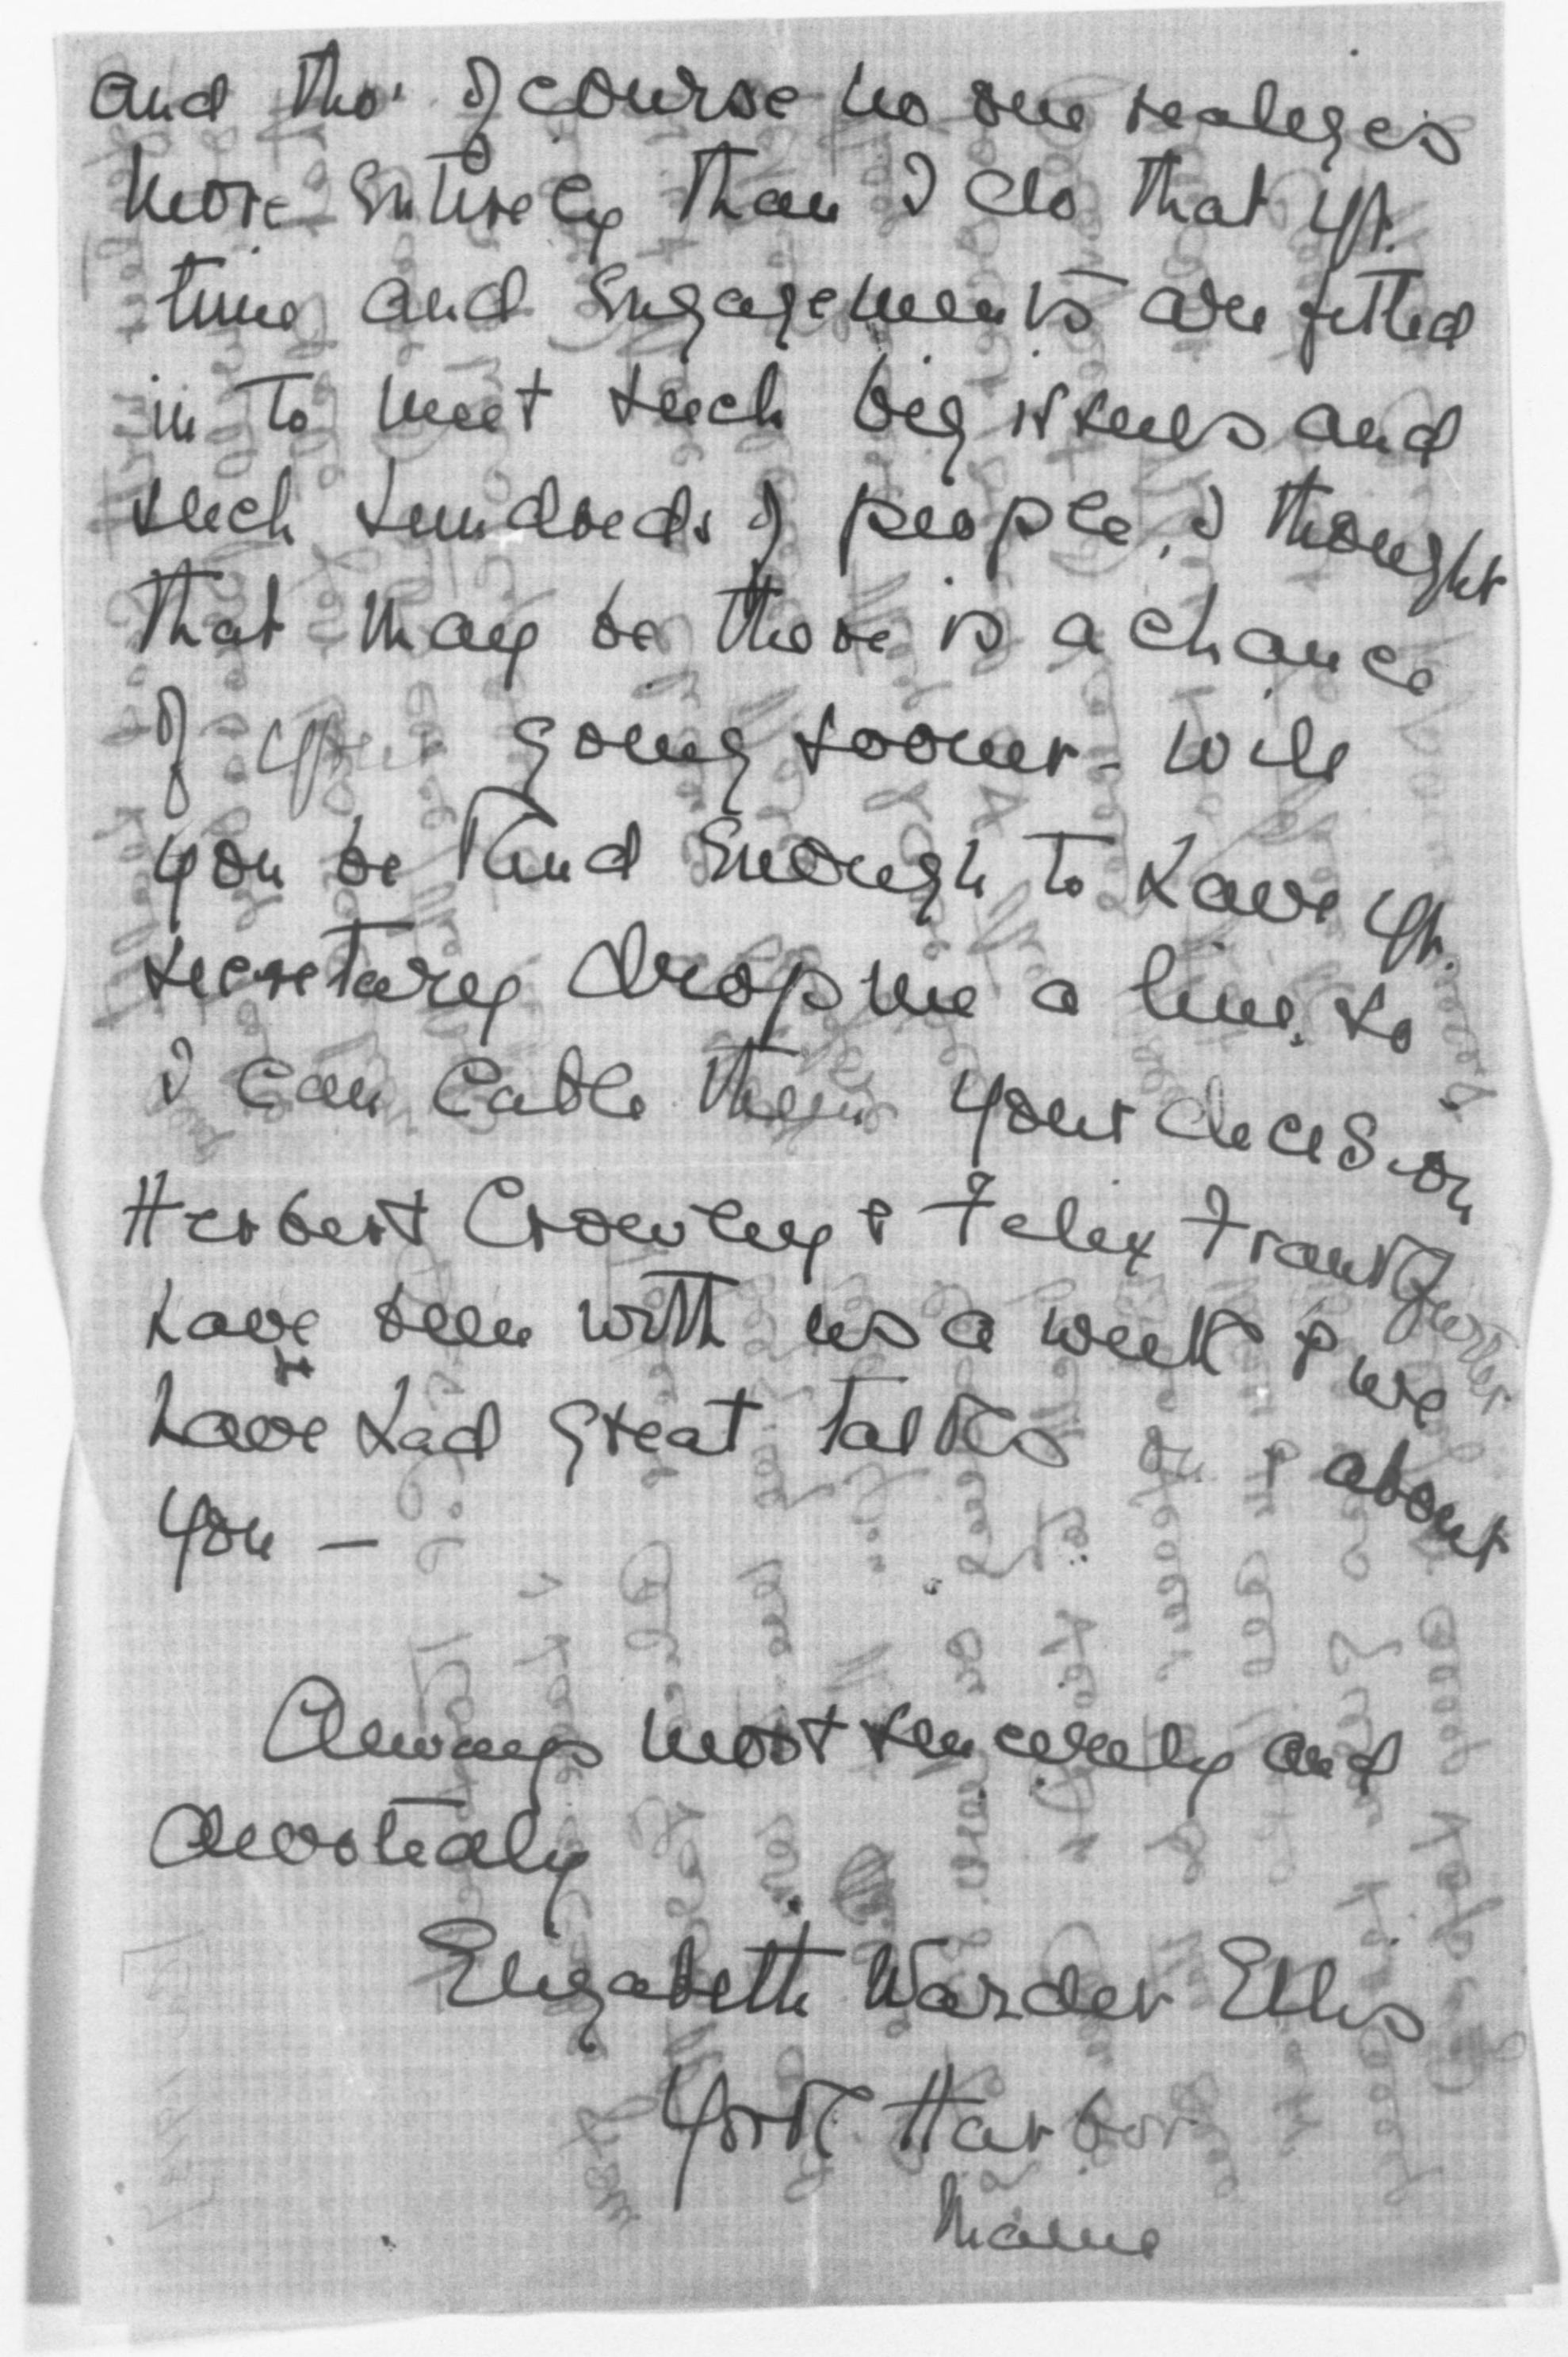 and tho' of course no one realizes
more entirely than I do that yr.
time and engagements are fitted
in to meet such big issues and
such hundreds of people, I thought
that may be there is a chance
of your going sooner - will
you be kind enough to have yr.
secretary drop me a line, so
I can cable them your decision
Herbert Crowley & Felix Frankfurter
have been with us a week & we
have had great talks & about
you -
Always most sincerely and
devotedly
Elizabeth Warder Ellis
York Harbor
Maine